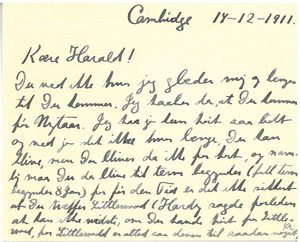 Cambridge 14-12-1911.
Kære Harald!
Du ved ikke hvor jeg glæder mig og længes
til Du kommer. Jeg haaber da, at Du kommer
før Nytaar. Jeg har jo kun haft saa lidt
og ved jo det ikke hvor længe, Du kan
blive, men Du bliver da ikke for kort, og navn
lig maa Du da blive til term begynder (full term
begynder 8 Jan) for før den Tid er det ikke sikkert
at Du træffer Littlewood (Hardy sagde forleden
at han ikke vidste, om Du havde først for Little-
wood, for Littlewood er altid saa